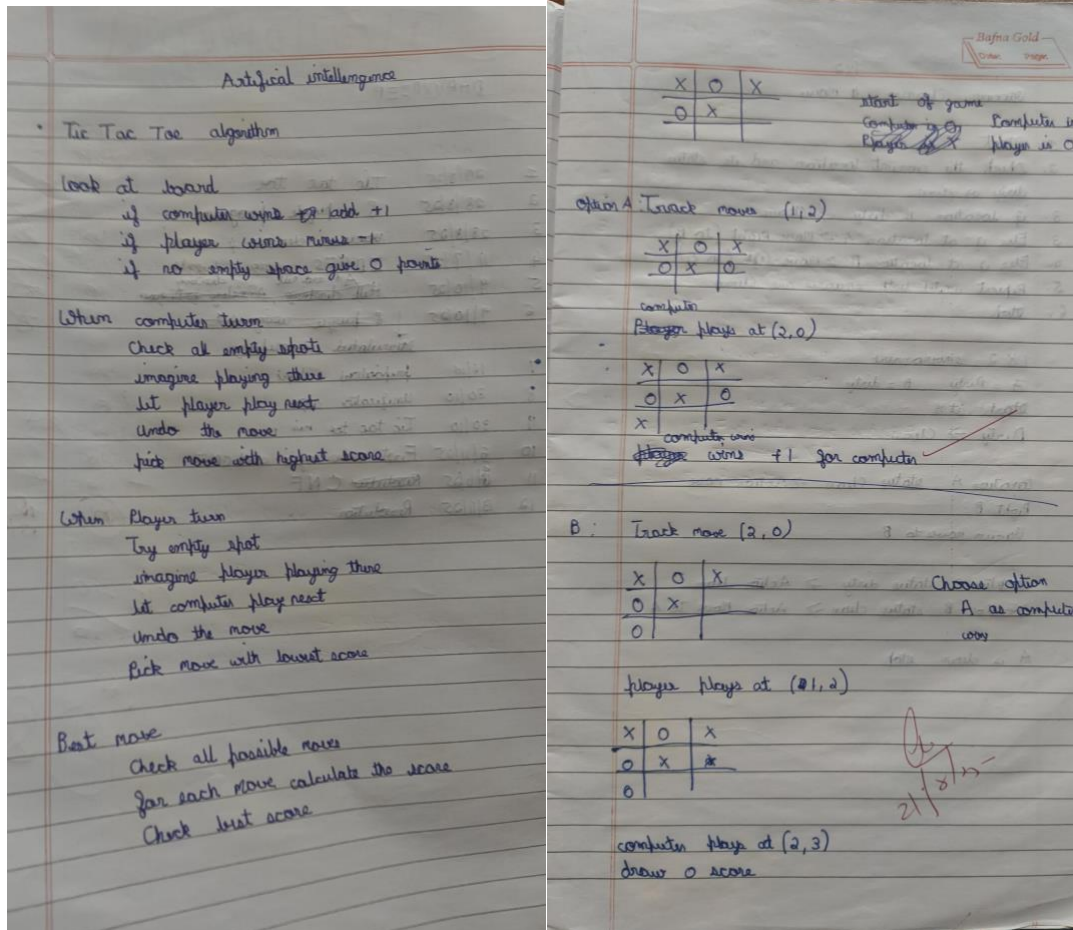 Artifical intellengence
Tic Tac Toe algorithm
look at board
if computer wins add +1
if player wins minus -1
if no empty space give 0 points
When computer turn
Check all empty spots
imagine playing there
let player play next
undo the move
pick move with highest score
When Player turn
Try empty spot
imagine player playing there
let computer play next
undo the move
Pick move with lowest score
Best move
Check all possible moves
for each move calculate the score
Check best score
Bafna Gold
Date: Page:
X O X
O X
start of game
Computer is
player is O
option A: Track moves (1,2)
X O X
O X O
computer
plays at (2,0)
X O X
O X O
X
computer wins
wins +1 for computer
B: Track move (2,0)
X O X
O X
O
Choose option
A as compute
won
player plays at (1,2)
X O X
O X
O
computer plays at (2,3)
draw 0 score